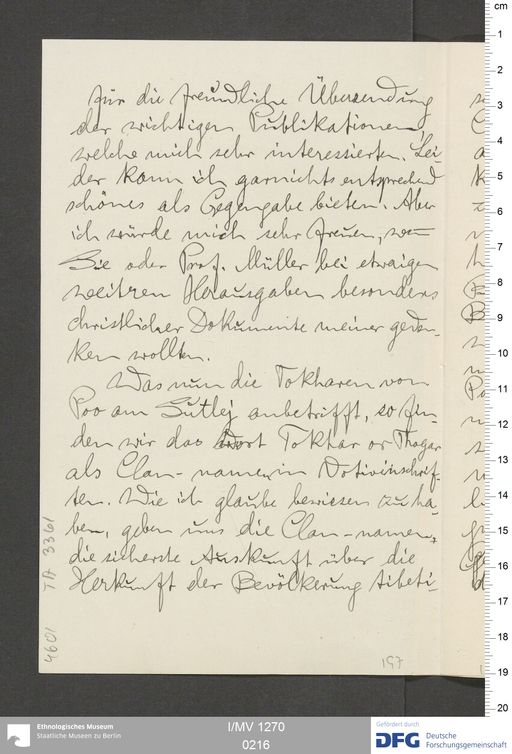 für die freundliche Übersendung
der wichtigen Publikationen,
welche mich sehr interessierten. Lei-
der kann ich garnichts entsprechend
schönes als Gegengabe bieten. Aber
ich würde mich sehr freuen, wenn
Sie oder Prof. Müller bei etwaigen
weitren Herausgaben besonders
christlicher Dokumente meiner geden-
ken wollten.
Was nun die Tokharen von
Poo am Sutlej anbetrifft, so fin-
den wir das Wort Tokhar or Thogar
als Clan-namen in Votivinschrif-
ten. Wie ich glaube bewiesen zu ha-
ben, geben uns die Clan-namen,
die sicherste Auskunft über die
Herkunft der Bevölkerung tibeti-
197
TA 3361
4601
cm
1
2
3
4
5
6
7
8
9
10
11
12
13
14
15
16
17
18
19
20
Ethnologisches Museum
Staatliche Museen zu Berlin
I/MV 1270
0216
Gefördert durch
DFG Deutsche
Forschungsgemeinschaft